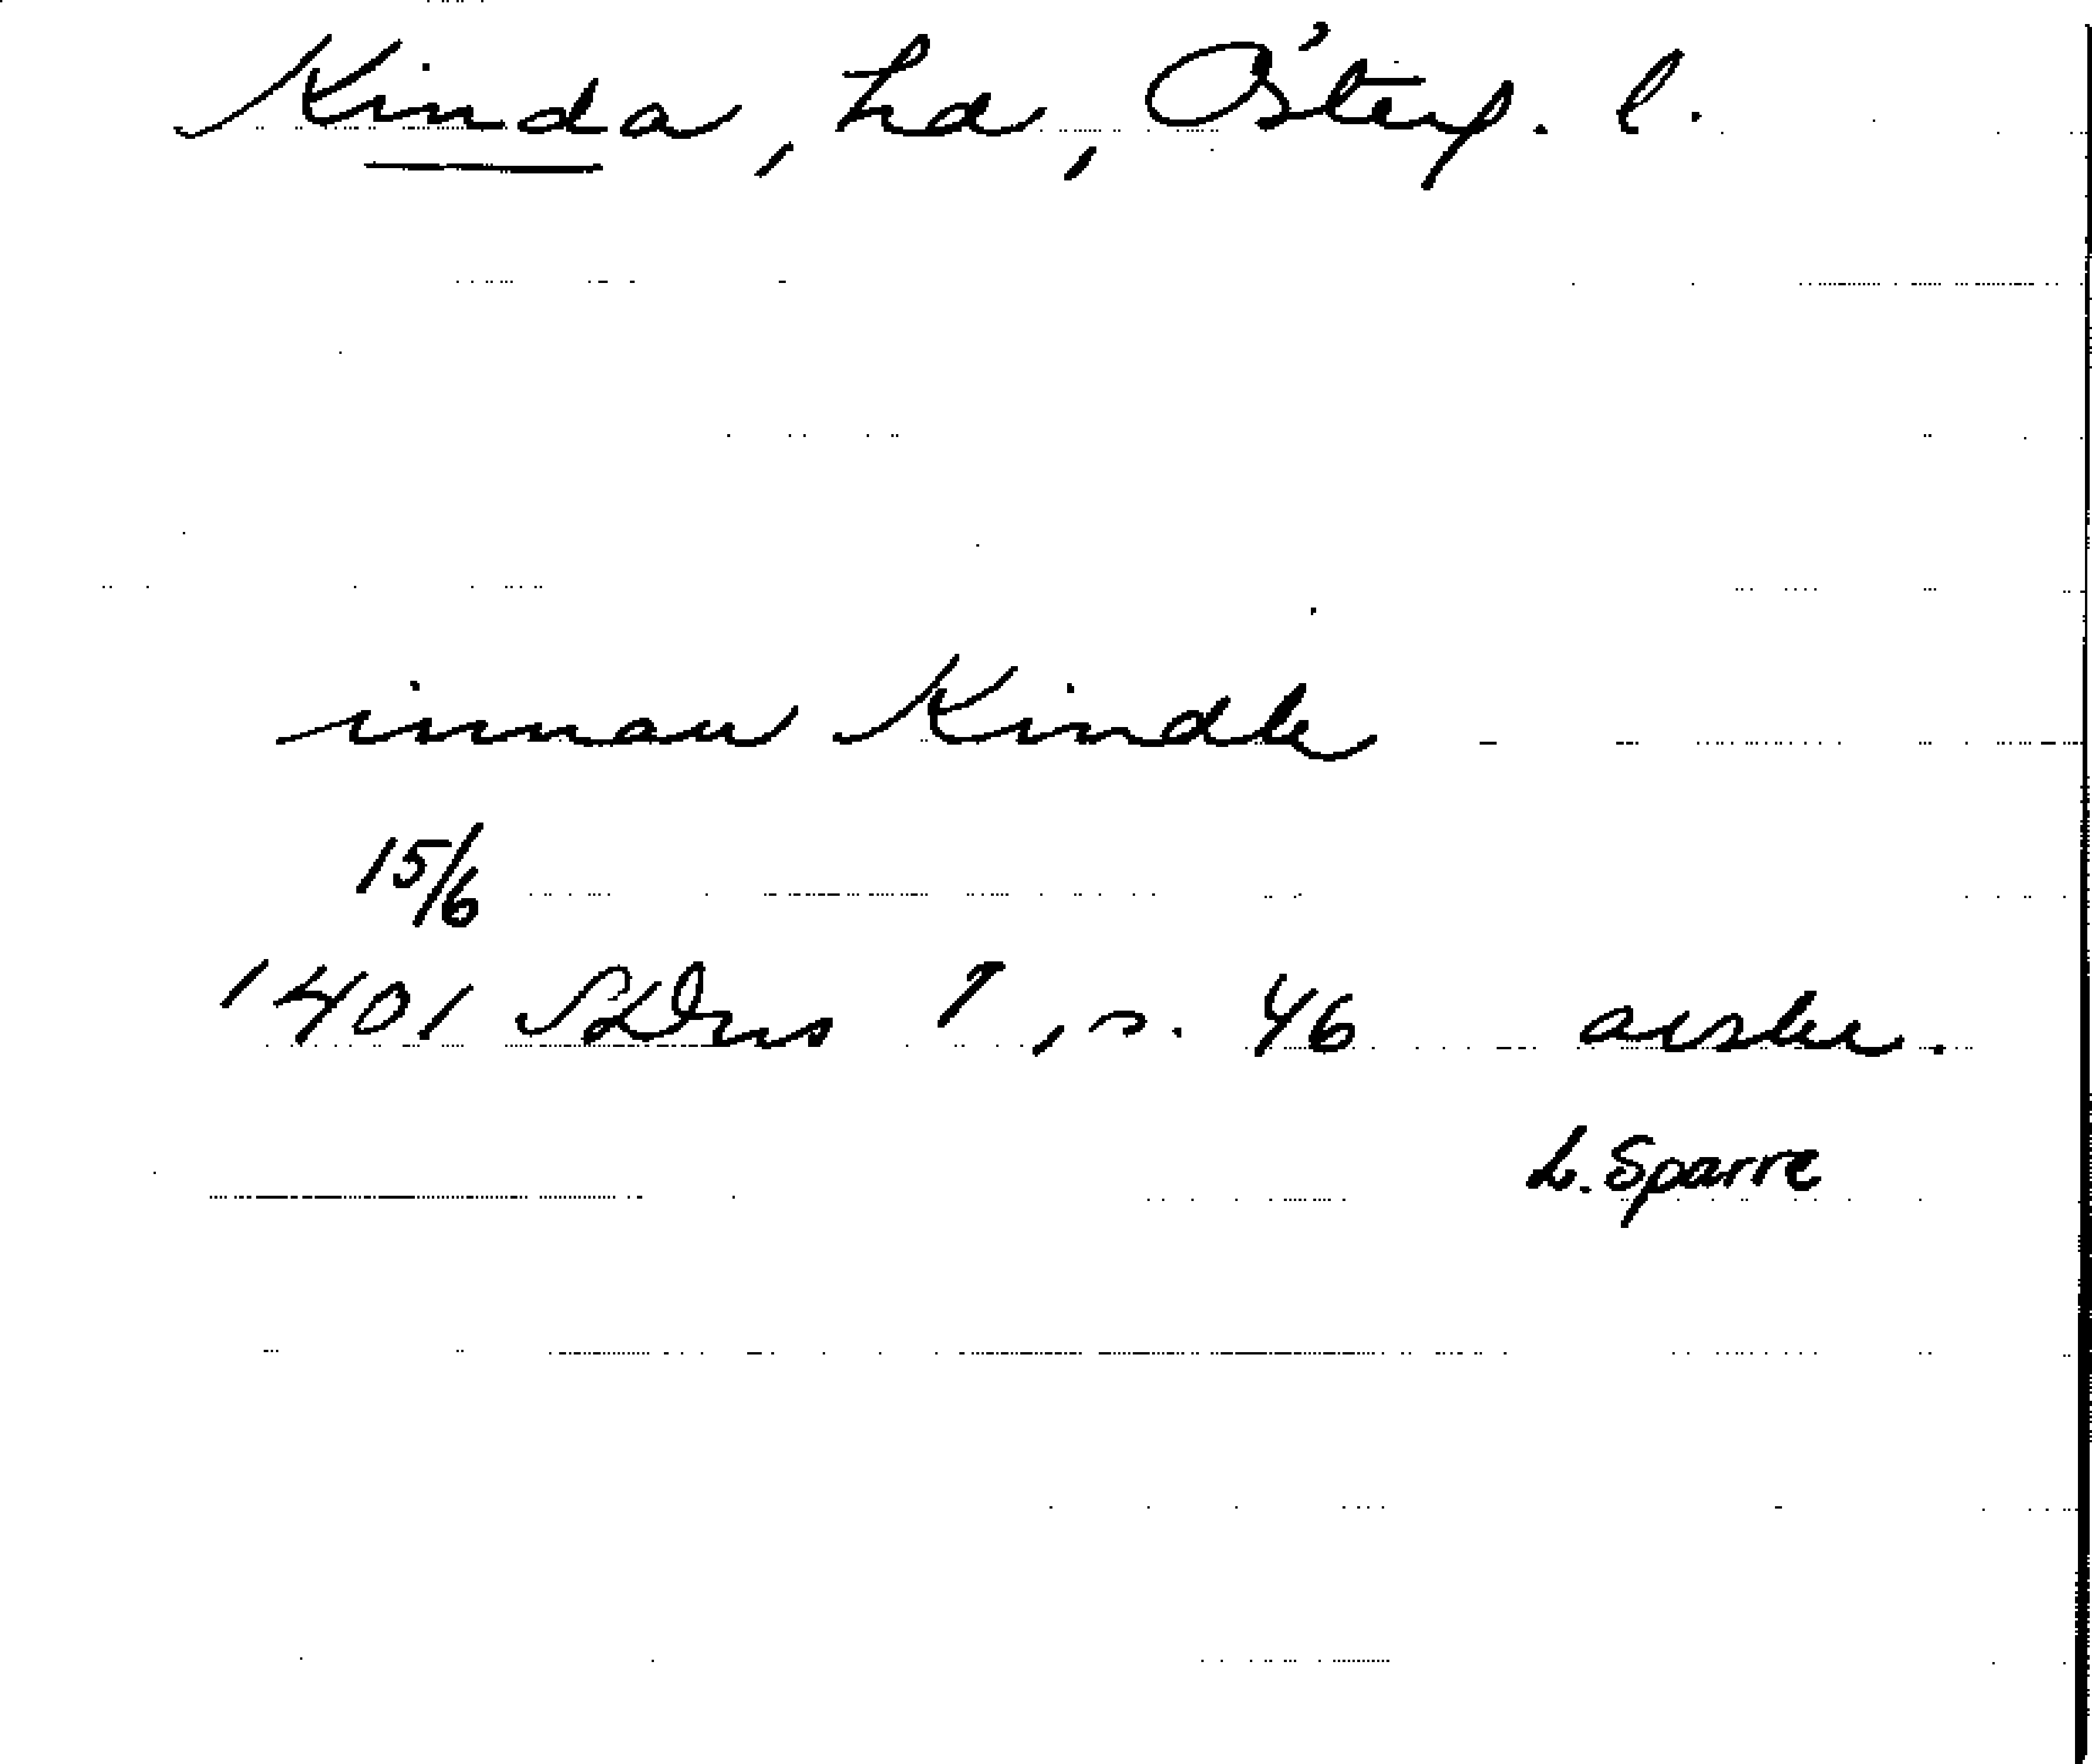 Kinda, hd, Österg. l.
innan Kindle
15/6
1401 SDns 1, s. 46 avskr.
L. Sparre